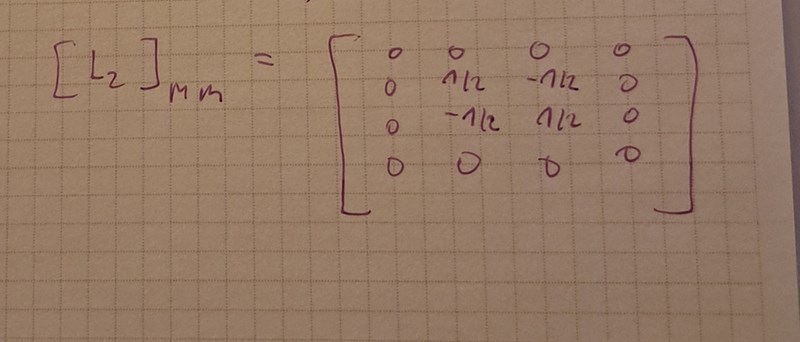 [L₂]mm = [0 0 0 0
0 1/2 -1/2 0
0 -1/2 1/2 0
0 0 0 0]